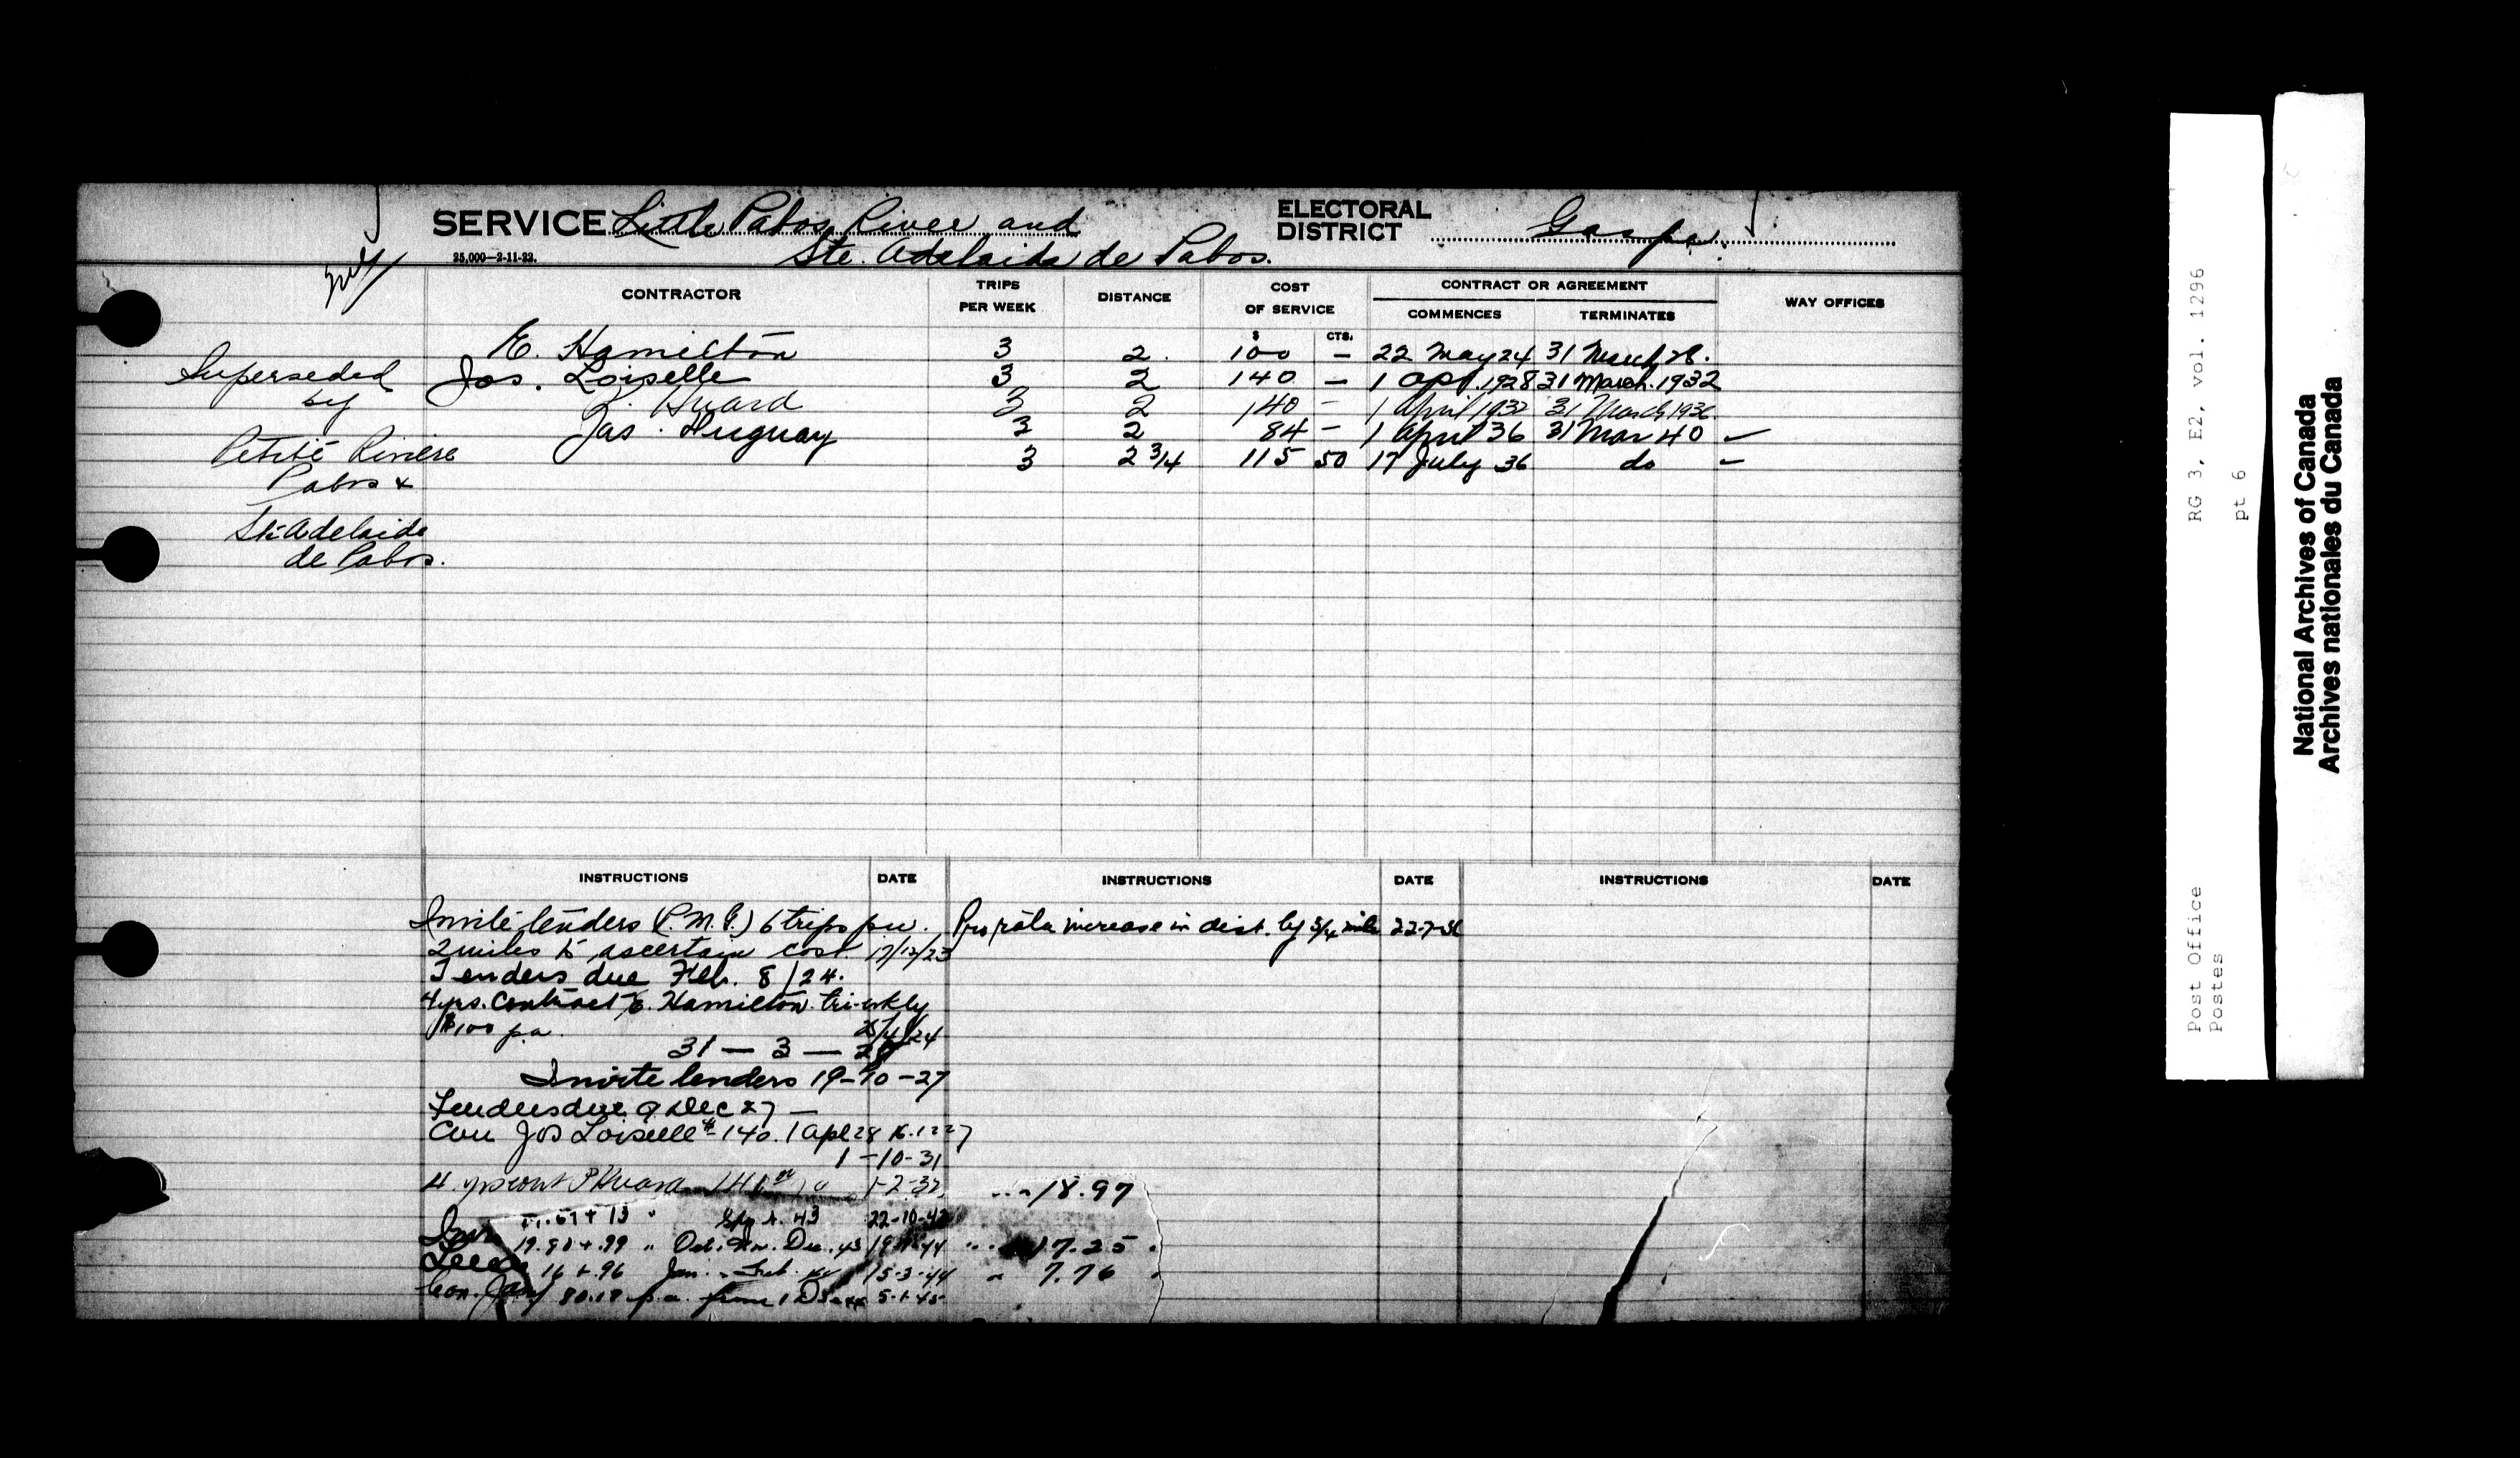 SERVICE Little Pabos River and
Ste. Adelaide de Pabos.
ELECTORAL DISTRICT Gaspe.
25,000—2-11-22.
CONTRACTOR TRIPS PER WEEK DISTANCE COST OF SERVICE CONTRACT OR AGREEMENT WAY OFFICES
COMMENCES TERMINATES
$ CTS.
E. Hamilton 3 2. 100 — 22 May 24 31 March 28.
Jos. Loiselle 3 2 140 — 1 Apl. 1928 31 March. 1932
Huard 3 2 140 - 1 April 1932 31 March 1936.
Jas. Huguay 3 2 84 - 1 April 36 31 Mar 40
3 2 3/4 115 50 17 July 36 do
Superseded
by
Petite Rivière
Pabos &
Ste Adelaide
de Pabos.
INSTRUCTIONS DATE INSTRUCTIONS DATE INSTRUCTIONS DATE
Invite tenders (P.M.G.) 6 trips p.w.
2 miles to ascertain cost. 17/12/23
Tenders due Feb. 8/24.
4 yrs. contract E. Hamilton tri-wkly
$100 p.a. /24
31 — 3 — 28
Invite tenders 19-10-27
Tenders due 9 Dec 27 —
Con Jos Loiselle $140. 1 Apl 28
1-10-31
4 yrs cont Huard 1-2-32
+ 13 " 43 22-10-43
19.90 + .99 " Oct. Nov. Dec. 43
16 + .96 Jan. Feb. 15-3-44
Con. Jas 80.18 p.a. from 1 5-1-45
Pro rata increase in dist. by 3/4 mile 22-7-36
18.97
17.25
7.76
Post Office
Postes
RG 3, E2, vol. 1296
pt 6
National Archives of Canada
Archives nationales du Canada